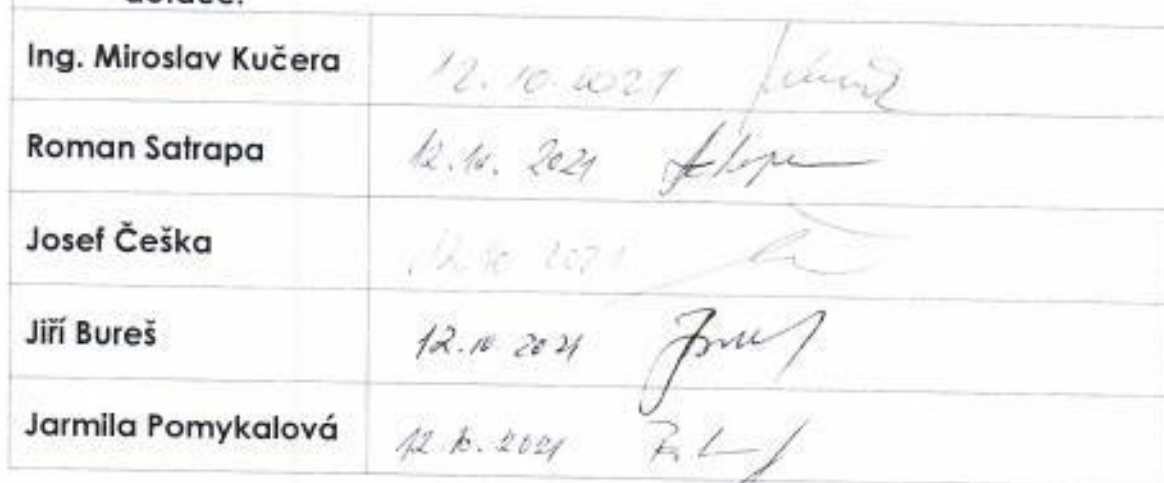 Ing. Miroslav Kučera 12.10.2021
Roman Satrapa 12.10. 2021
Josef Češka 12.10 2021
Jiří Bureš 12.10 2021
Jarmila Pomykalová 12.10.2021